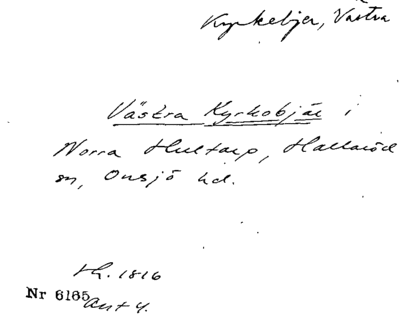 Kyrkebjer, Västra
Västra Kyrkobjär i
Norra Hultarp, Hallaröd
sn, Onsjö hd.
th. 1816
Nr 6165
akt 4.